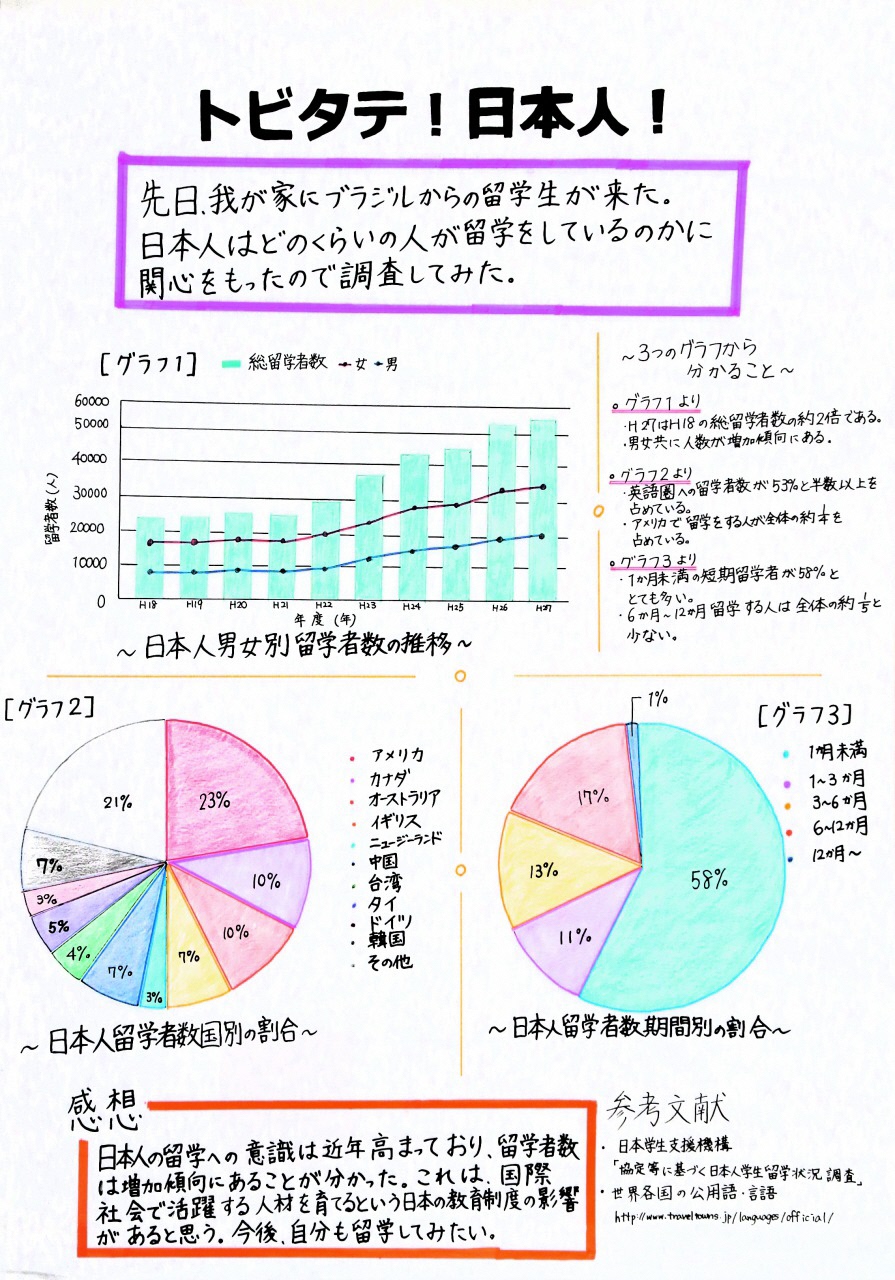 トビタテ！日本人！
先日、我が家にブラジルからの留学生が来た。
日本人はどのくらいの人が留学をしているのかに
関心をもったので調査してみた。
[グラフ1]
総留学者数 女 男
留学者数(人)
60000
50000
40000
30000
20000
10000
0
H18 H19 H20 H21 H22 H23 H24 H25 H26 H27
年度(年)
～日本人男女別留学者数の推移～
～3つのグラフから
分かること～
グラフ1より
・H27はH18の総留学者数の約2倍である。
・男女共に人数が増加傾向にある。
グラフ2より
・英語圏への留学者数が53%と半数以上を
占めている。
・アメリカで留学をする人が全体の約1/4を
占めている。
グラフ3より
・1か月未満の短期留学者が58%と
とても多い。
・6か月～12か月留学する人は全体の約1/5と
少ない。
[グラフ2]
23%
10%
10%
7%
3%
7%
4%
5%
3%
7%
21%
・アメリカ
・カナダ
・オーストラリア
・イギリス
・ニュージーランド
・中国
・台湾
・タイ
・ドイツ
・韓国
・その他
～日本人留学者数国別の割合～
[グラフ3]
1%
58%
11%
13%
17%
・1か月未満
・1～3か月
・3～6か月
・6～12か月
・12か月～
～日本人留学者数期間別の割合～
感想
日本人の留学への意識は近年高まっており、留学者数
は増加傾向にあることが分かった。これは、国際
社会で活躍する人材を育てるという日本の教育制度の影響
があると思う。今後、自分も留学してみたい。
参考文献
・日本学生支援機構
「協定等に基づく日本人学生留学状況調査」
・世界各国の公用語・言語
http://www.traveltowns.jp/languages/official/